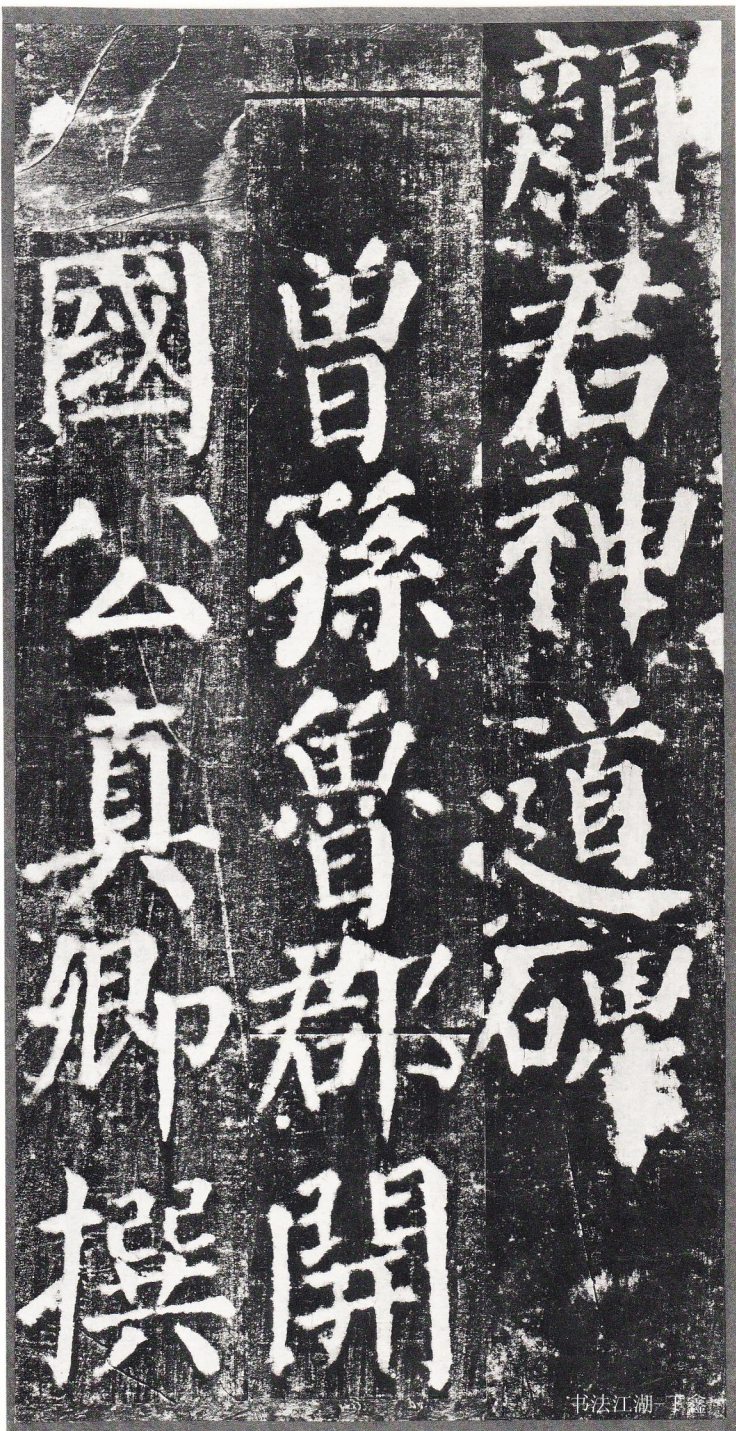 顏君神道碑
曾孫魯郡開
國公真卿撰
书法江湖